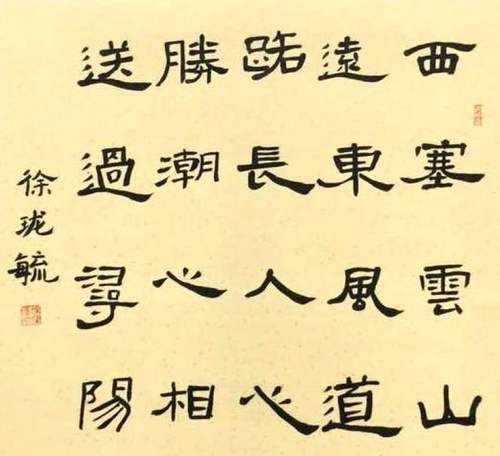 西塞雲山
遠東風道
路長人心
勝潮心相
送過尋陽
徐珑毓